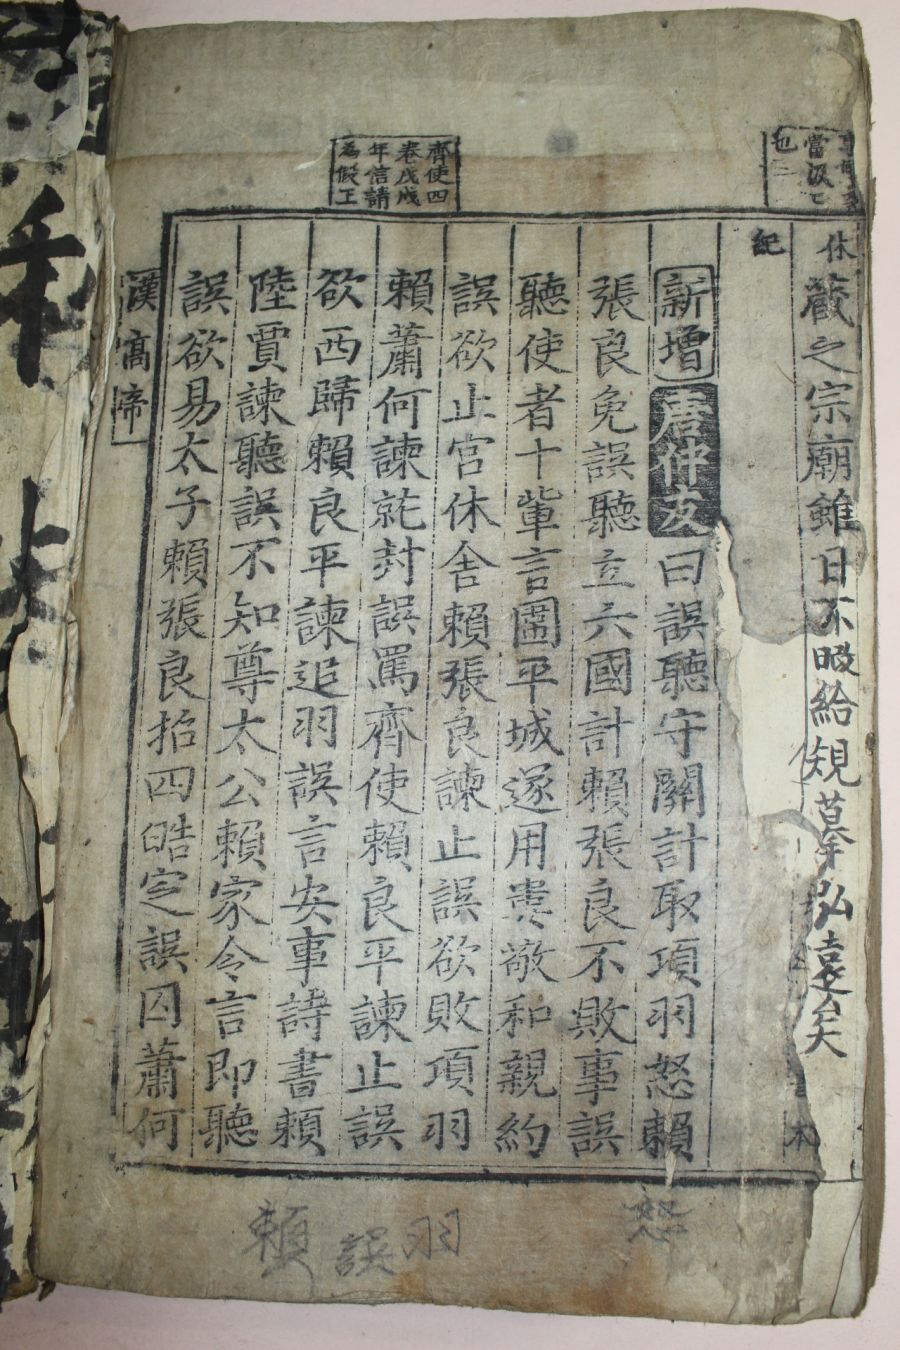 休藏之宗廟雖日不暇給規摹弘遠矣
紀
新增唐仲友曰誤聽守關計取項羽怒賴
張良免誤聽立六國計賴張良不敗事誤
聽使者十輩言圍平城遂用婁敬和親約
誤欲止宮休舍賴張良諫止誤欲敗項羽
賴蕭何諫就封誤罵齊使賴良平諫止誤
欲西歸賴良平諫追羽誤言安事詩書賴
陸賈諫聽誤不知尊太公賴家令言即聽
誤欲易太子賴張良招四皓定誤囚蕭何
漢高帝
當汲
也
齊使四
卷戊戌
年信請
爲假王
怒
羽
誤
賴